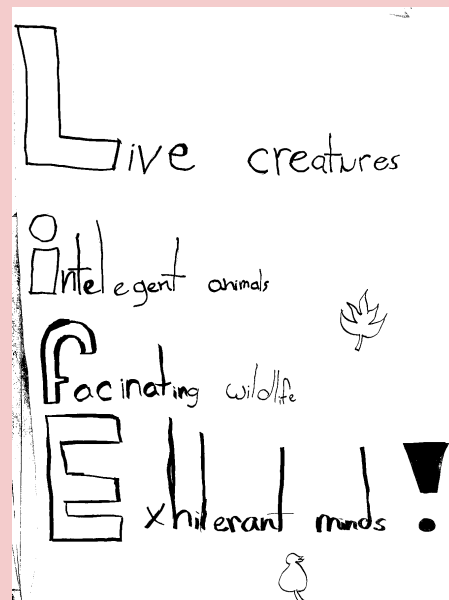 Live creatures
intelegent animals
facinating wildlife
Exhilerant minds!